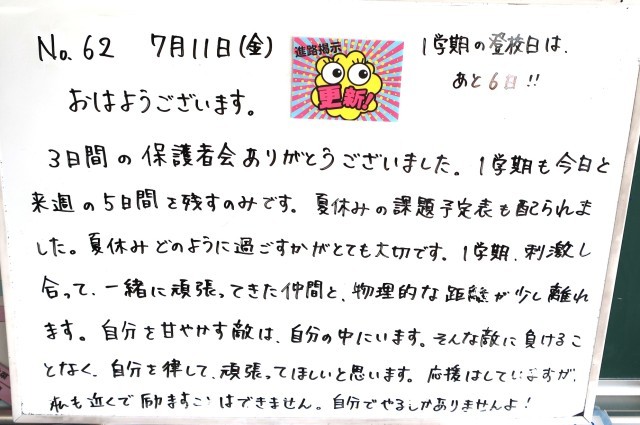 No.62 7月11日(金)
進路掲示
更新!
1学期の登校日は、
あと6日!!
おはようございます。
3日間の保護者会ありがとうございました。1学期も今日と
来週の5日間を残すのみです。夏休みの課題予定表も配られま
した。夏休みどのように過ごすかがとても大切です。1学期、刺激し
合って、一緒に頑張ってきた仲間と、物理的な距離が少し離れ
ます。自分を甘やかす敵は、自分の中にいます。そんな敵に負けるこ
となく、自分を律して、頑張ってほしいと思います。応援はしていますが、
私も近くで励ますことはできません。自分でやるしかありませんよ!